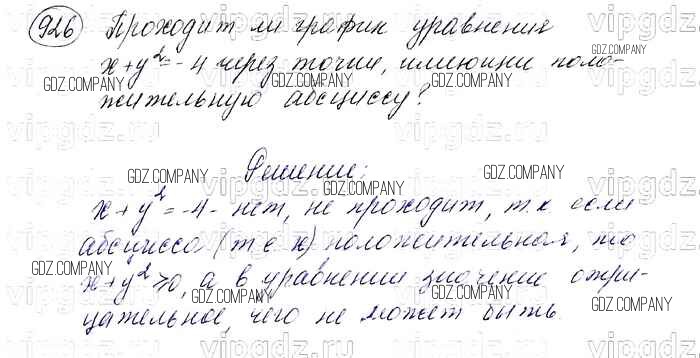 926 Проходит ли график уравнения
x + y² = -4 через точки, имеющие поло-
жительную абсциссу?
Решение:
x + y² = -4 - нет, не проходит, т.к. если
абсцисса (т.е х) положительная, то
x + y² ≥ 0, а в уравнении значение отри-
цательное, чего не может быть.
GDZ.COMPANY
vipgdz.ru